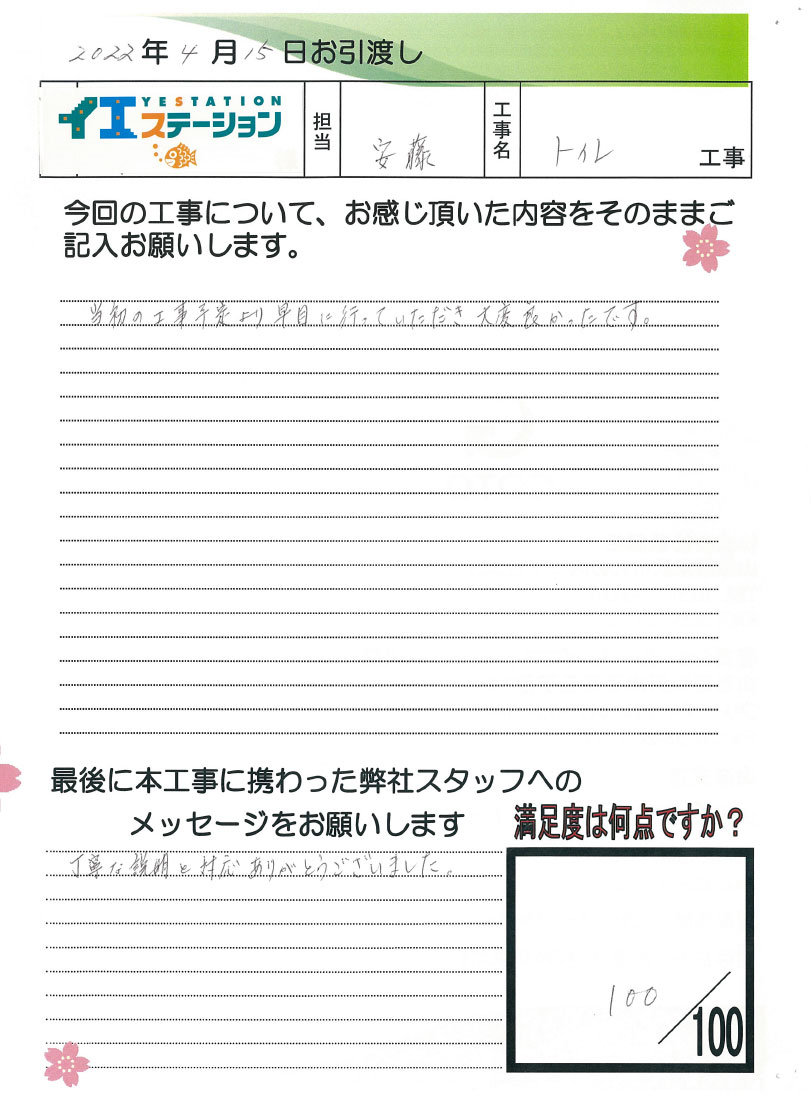 2022年4月15日お引渡し
YESTATION
イエステーション
担当
安藤
工事名
トイレ
工事
今回の工事について、お感じ頂いた内容をそのままご
記入お願いします。
当初の工事予定より早目に行っていただき大変良かったです。
最後に本工事に携わった弊社スタッフへの
メッセージをお願いします
満足度は何点ですか?
丁寧な説明と対応ありがとうございました。
100
/100